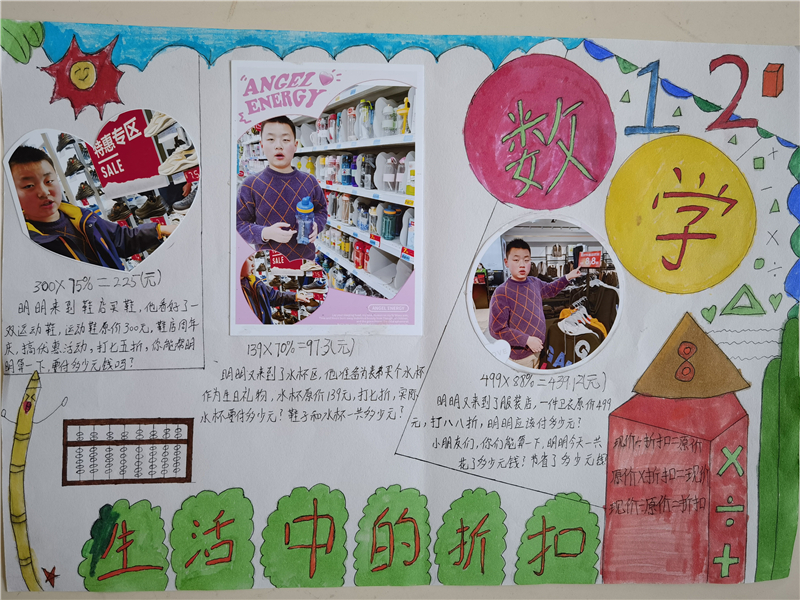 数学
1 2
ANGEL
ENERGY
特惠专区
SALE
300×75%=225(元)
明明来到鞋店买鞋,他看好了一
双运动鞋,运动鞋原价300元,鞋店周年
庆,搞优惠活动,打七五折,你能帮明
明算一下,要付多少元钱吗?
139×70%=97.3(元)
明明又来到了水杯区,他准备为表弟买个水杯
作为生日礼物,水杯原价139元,打七折,买
水杯要付多少元?鞋子和水杯一共多少元?
499×88%=439.12(元)
明明又来到了服装店,一件卫衣原价499
元,打八八折,明明应该付多少元?
小朋友们,你们能算一下,明明今天一共
花了多少元钱?节省了多少元钱
8
现价÷折扣=原价
原价×折扣=现价
现价÷原价=折扣
× ÷ +
生活中的折扣